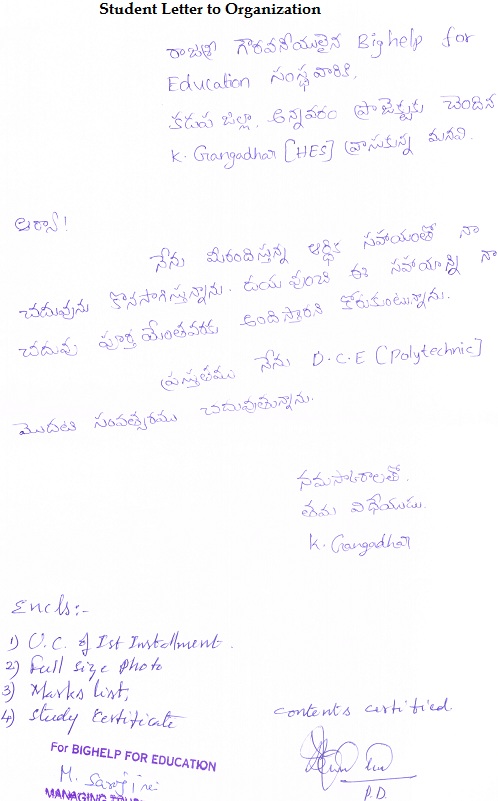 Student Letter to Organization
రాజశ్రీ గౌరవనీయులైన Bighelp for
Education సంస్థ వారికి,
కడప జిల్లా, అన్నవరం ప్రాజెక్టుకు చెందిన
K. Gangadhar [HES] వ్రాసుకున్న మనవి.
ఆర్యా!
నేను మీరందిస్తున్న ఆర్ధిక సహాయంతో నా
చదువును కొనసాగిస్తున్నాను. దయ వుంచి ఈ సహాయాన్ని నా
చదువు పూర్తి అయేంతవరకు అందిస్తారని కోరుకుంటున్నాను.
ప్రస్తుతము నేను D.C.E [Polytechnic]
మొదటి సంవత్సరము చదువుతున్నాను.
నమస్కారాలతో.
తమ విధేయుడు.
K. Gangadhar
Encls:-
1) U.C. of Ist Installment.
2) Full size Photo
3) Marks list,
4) Study Certificate
contents certified.
For BIGHELP FOR EDUCATION
M. Sarojini
P.D.
MANAGING